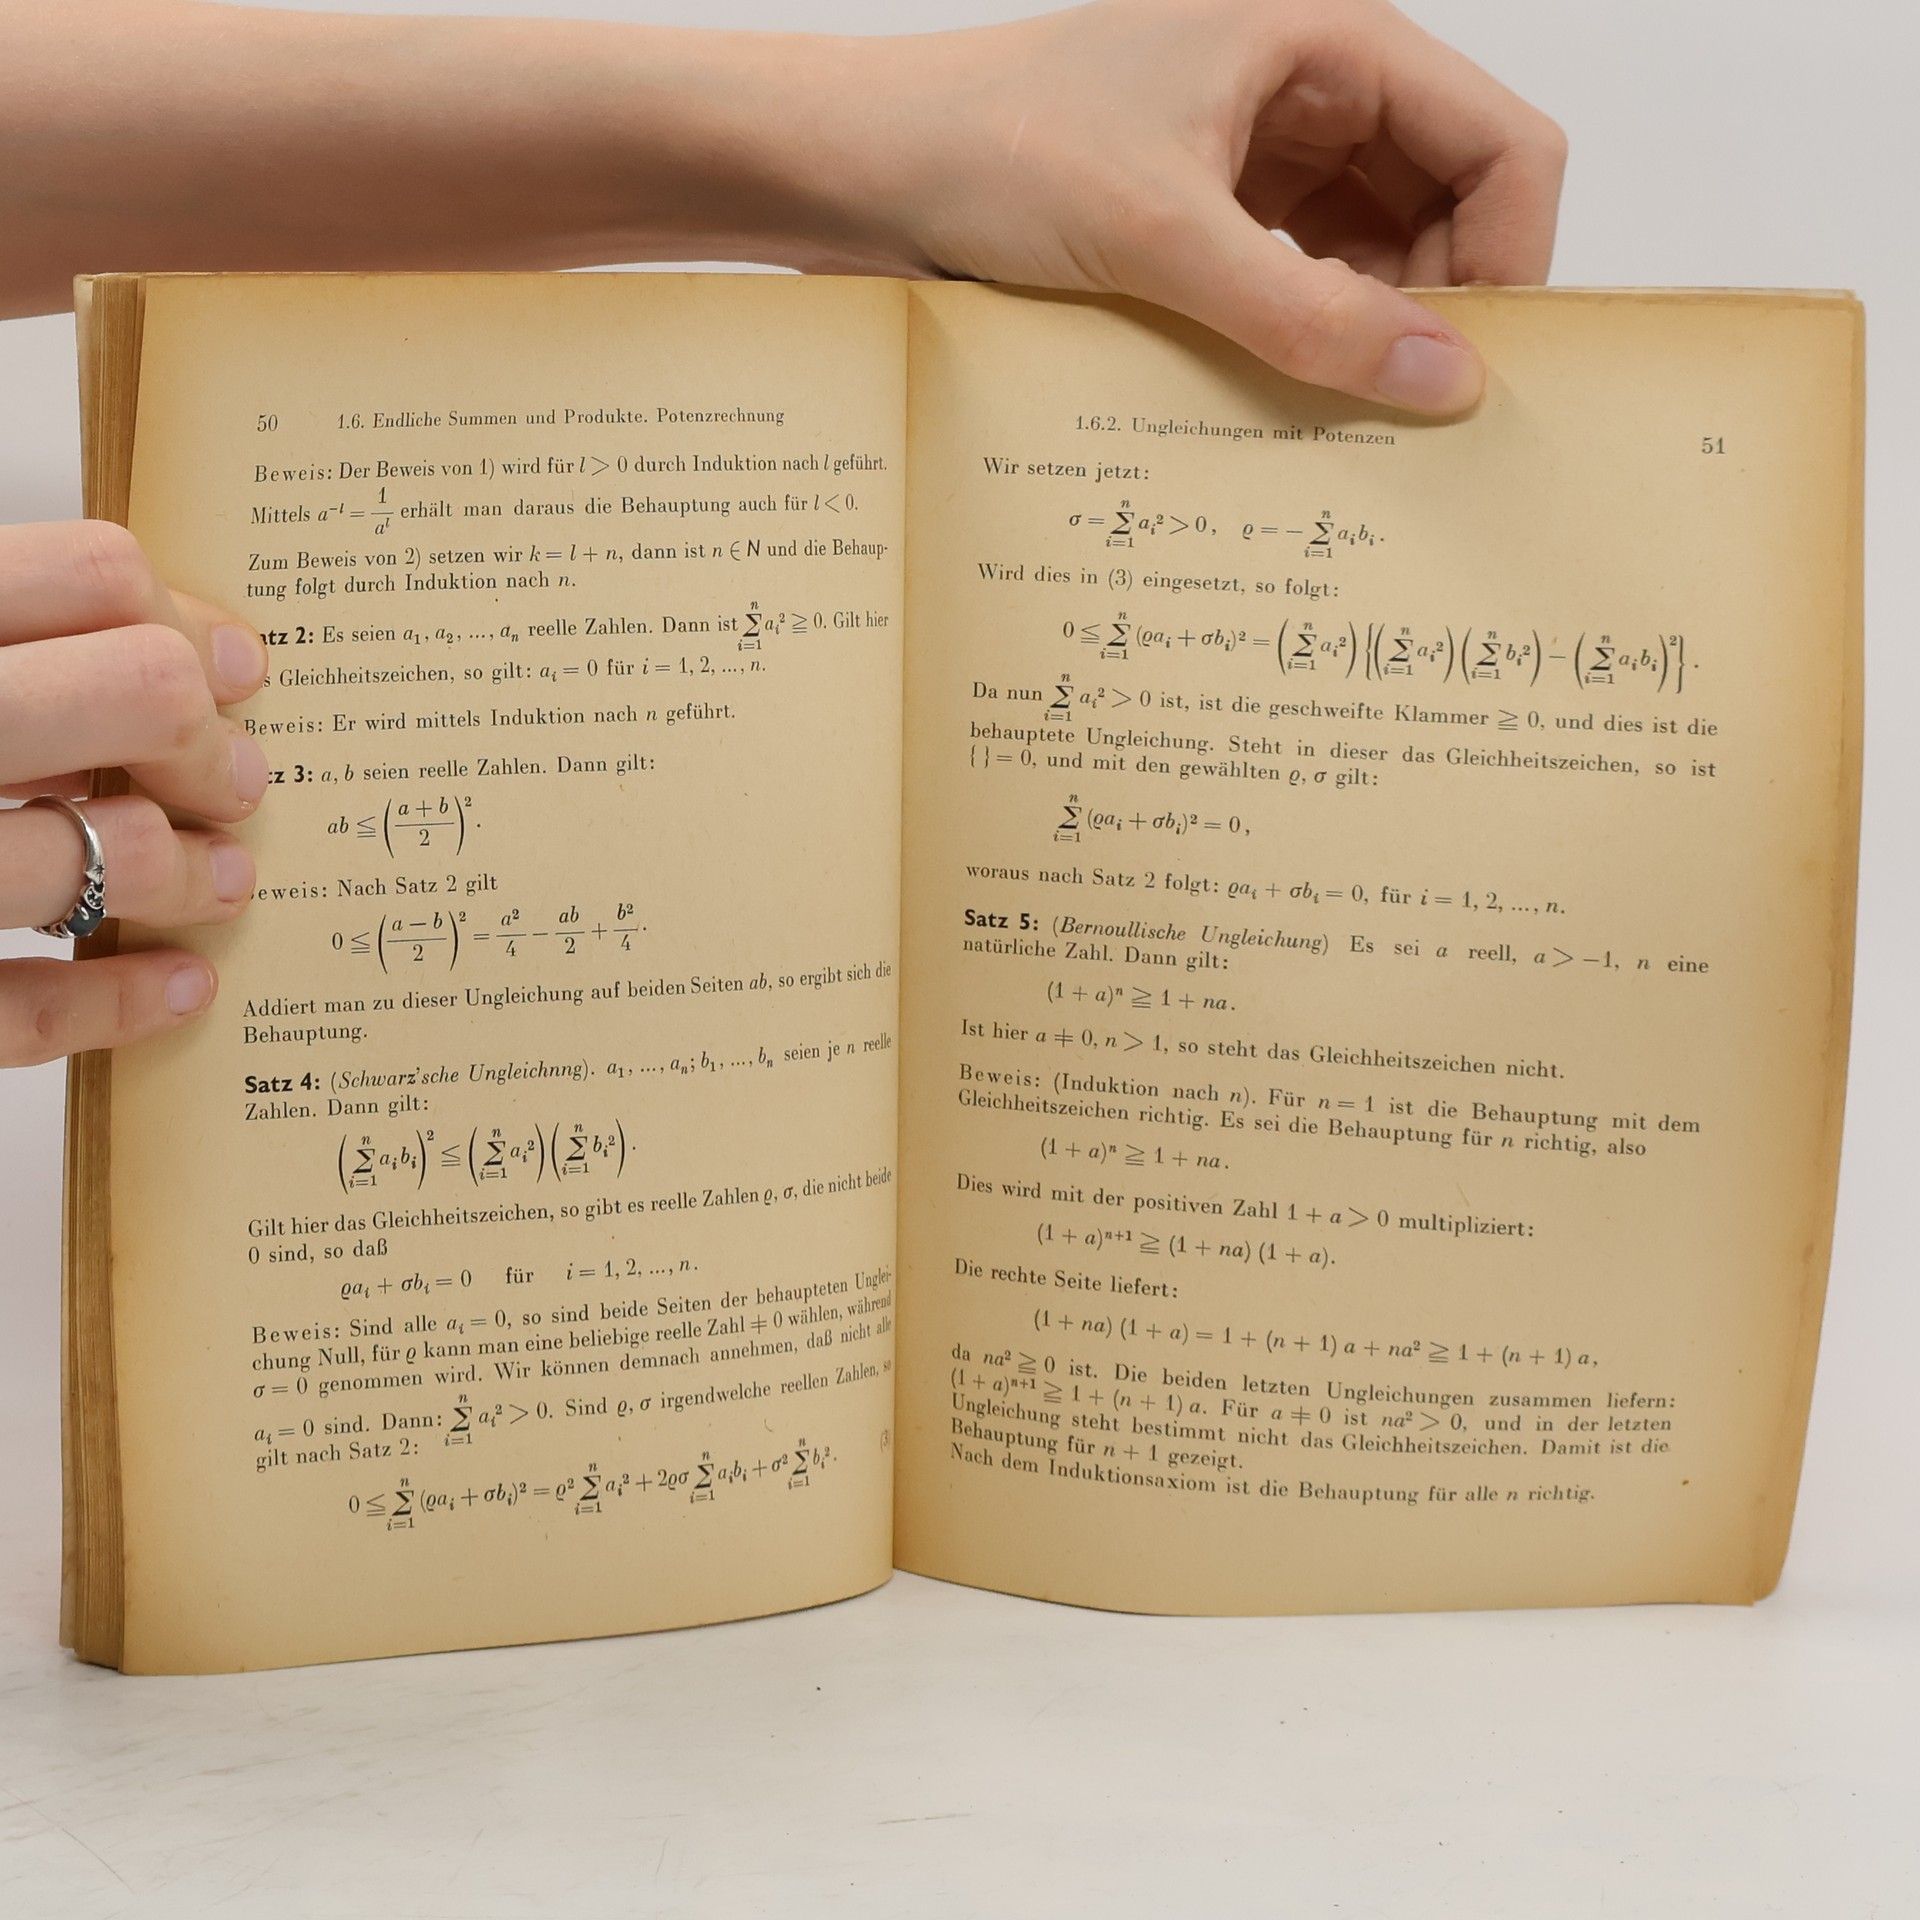 50 1.6. Endliche Summen und Produkte. Potenzrechnung
Beweis: Der Beweis von 1) wird für l > 0 durch Induktion nach l geführt.
Mittels a⁻ˡ = 1/aˡ erhält man daraus die Behauptung auch für l < 0.
Zum Beweis von 2) setzen wir k = l + n, dann ist n ∈ N und die Behaup-
tung folgt durch Induktion nach n.
tz 2: Es seien a₁, a₂, ..., aₙ reelle Zahlen. Dann ist ∑ᵢ₌₁ⁿ aᵢ² ≧ 0. Gilt hier
s Gleichheitszeichen, so gilt: aᵢ = 0 für i = 1, 2, ..., n.
Beweis: Er wird mittels Induktion nach n geführt.
tz 3: a, b seien reelle Zahlen. Dann gilt:
ab ≦ ((a + b)/2)².
eweis: Nach Satz 2 gilt
0 ≦ ((a − b)/2)² = a²/4 − ab/2 + b²/4.
Addiert man zu dieser Ungleichung auf beiden Seiten ab, so ergibt sich die
Behauptung.
Satz 4: (Schwarz'sche Ungleichnng). a₁, ..., aₙ; b₁, ..., bₙ seien je n reelle
Zahlen. Dann gilt:
(∑ᵢ₌₁ⁿ aᵢbᵢ)² ≦ (∑ᵢ₌₁ⁿ aᵢ²)(∑ᵢ₌₁ⁿ bᵢ²).
Gilt hier das Gleichheitszeichen, so gibt es reelle Zahlen ϱ, σ, die nicht beide
0 sind, so daß
ϱaᵢ + σbᵢ = 0 für i = 1, 2, ..., n.
Beweis: Sind alle aᵢ = 0, so sind beide Seiten der behaupteten Unglei-
chung Null, für ϱ kann man eine beliebige reelle Zahl ≠ 0 wählen, während
σ = 0 genommen wird. Wir können demnach annehmen, daß nicht alle
aᵢ = 0 sind. Dann: ∑ᵢ₌₁ⁿ aᵢ² > 0. Sind ϱ, σ irgendwelche reellen Zahlen, so
gilt nach Satz 2:
0 ≦ ∑ᵢ₌₁ⁿ (ϱaᵢ + σbᵢ)² = ϱ² ∑ᵢ₌₁ⁿ aᵢ² + 2ϱσ ∑ᵢ₌₁ⁿ aᵢbᵢ + σ² ∑ᵢ₌₁ⁿ bᵢ². (3
1.6.2. Ungleichungen mit Potenzen 51
Wir setzen jetzt:
σ = ∑ᵢ₌₁ⁿ aᵢ² > 0, ϱ = − ∑ᵢ₌₁ⁿ aᵢbᵢ.
Wird dies in (3) eingesetzt, so folgt:
0 ≦ ∑ᵢ₌₁ⁿ (ϱaᵢ + σbᵢ)² = (∑ᵢ₌₁ⁿ aᵢ²) {(∑ᵢ₌₁ⁿ aᵢ²)(∑ᵢ₌₁ⁿ bᵢ²) − (∑ᵢ₌₁ⁿ aᵢbᵢ)²}.
Da nun ∑ᵢ₌₁ⁿ aᵢ² > 0 ist, ist die geschweifte Klammer ≧ 0, und dies ist die
behauptete Ungleichung. Steht in dieser das Gleichheitszeichen, so ist
{ } = 0, und mit den gewählten ϱ, σ gilt:
∑ᵢ₌₁ⁿ (ϱaᵢ + σbᵢ)² = 0,
woraus nach Satz 2 folgt: ϱaᵢ + σbᵢ = 0, für i = 1, 2, ..., n.
Satz 5: (Bernoullische Ungleichung) Es sei a reell, a > −1, n eine
natürliche Zahl. Dann gilt:
(1 + a)ⁿ ≧ 1 + na.
Ist hier a ≠ 0, n > 1, so steht das Gleichheitszeichen nicht.
Beweis: (Induktion nach n). Für n = 1 ist die Behauptung mit dem
Gleichheitszeichen richtig. Es sei die Behauptung für n richtig, also
(1 + a)ⁿ ≧ 1 + na.
Dies wird mit der positiven Zahl 1 + a > 0 multipliziert:
(1 + a)ⁿ⁺¹ ≧ (1 + na) (1 + a).
Die rechte Seite liefert:
(1 + na) (1 + a) = 1 + (n + 1) a + na² ≧ 1 + (n + 1) a,
da na² ≧ 0 ist. Die beiden letzten Ungleichungen zusammen liefern:
(1 + a)ⁿ⁺¹ ≧ 1 + (n + 1) a. Für a ≠ 0 ist na² > 0, und in der letzten
Ungleichung steht bestimmt nicht das Gleichheitszeichen. Damit ist die
Behauptung für n + 1 gezeigt.
Nach dem Induktionsaxiom ist die Behauptung für alle n richtig.